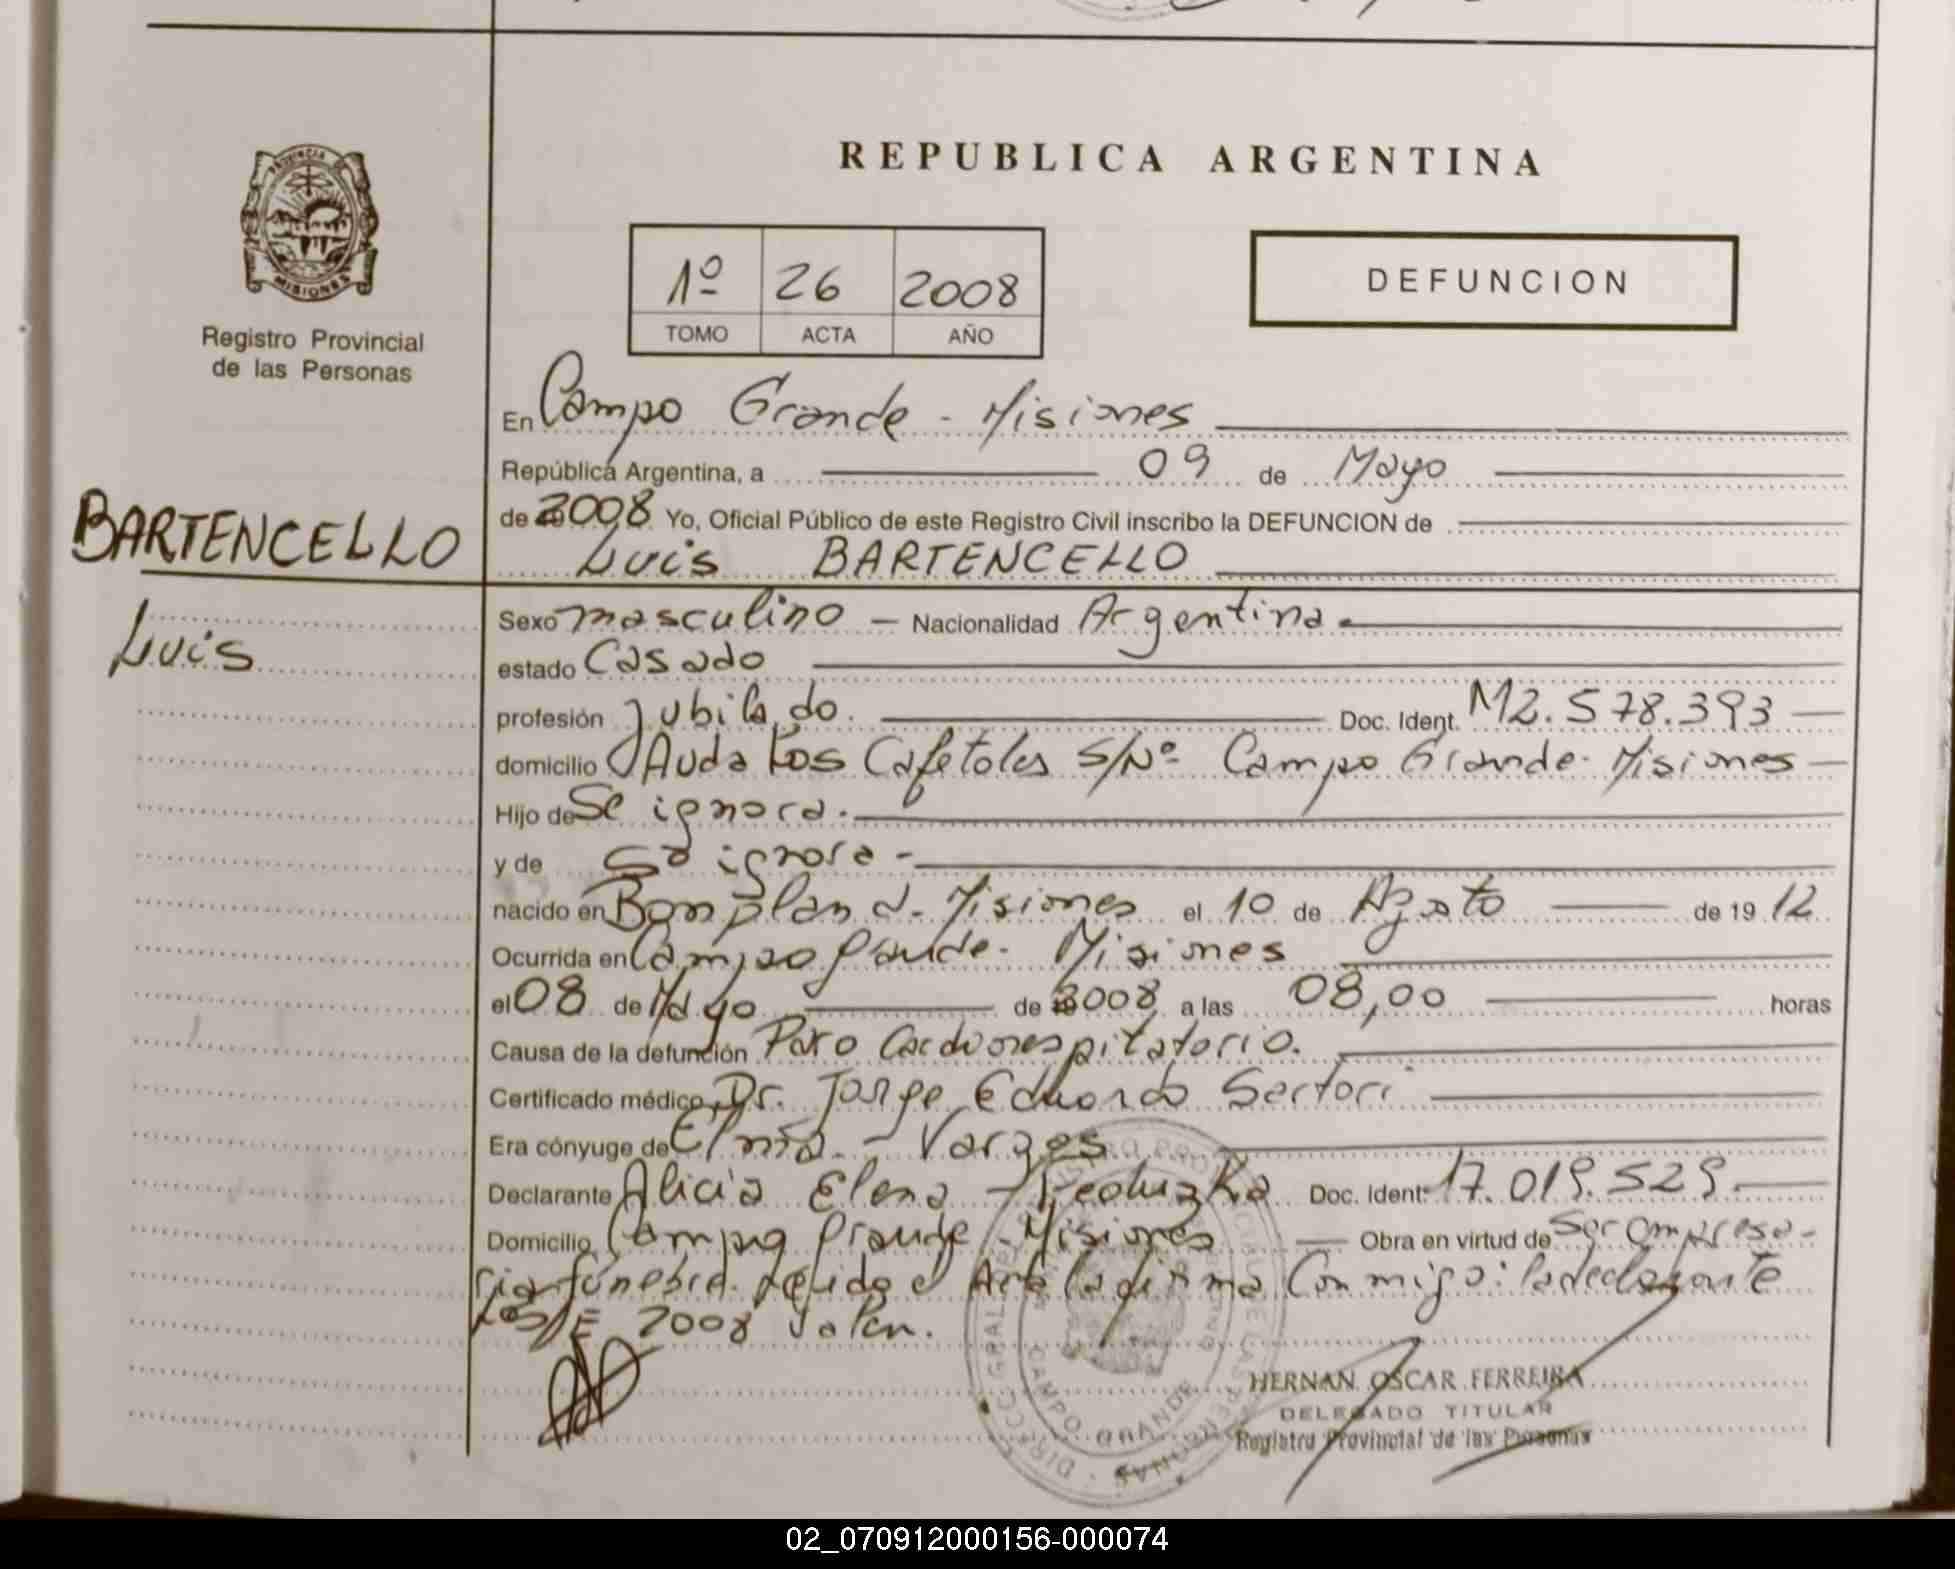 PROVINCIA
MISIONES
Registro Provincial
de las Personas
REPUBLICA ARGENTINA
1º 26 2008
TOMO ACTA AÑO
DEFUNCION
En Campo Grande - Misiones
República Argentina, a 09 de Mayo
de 2008 Yo, Oficial Público de este Registro Civil inscribo la DEFUNCION de
BARTENCELLO
Luis BARTENCELLO
Luis
Sexo masculino - Nacionalidad Argentina.
estado Casado
profesión Jubilado. Doc. Ident. M2.578.393
domicilio Avda Los Cafetales S/Nº Campo Grande - Misiones
Hijo de Se ignora.
y de Se ignora -
nacido en Bonpland - Misiones el 10 de Agosto de 19 12
Ocurrida en Campo Grande - Misiones
el 08 de Mayo de 2008 a las 08,00 horas
Causa de la defunción Paro Cardiorespiratorio.
Certificado médico Dr. Jorge Eduardo Sartori
Era cónyuge de Vargas
Declarante Alicia Elena Doc. Ident. 17.019.529
Domicilio Campo Grande - Misiones Obra en virtud de Ser empresa-
ria fúnebre. Leida el Acta la firma Conmigo: la declarante
2008 Valen.
HERNAN OSCAR FERREIRA
DELEGADO TITULAR
Registro Provincial de las Personas
CAMPO GRANDE
02_070912000156-000074